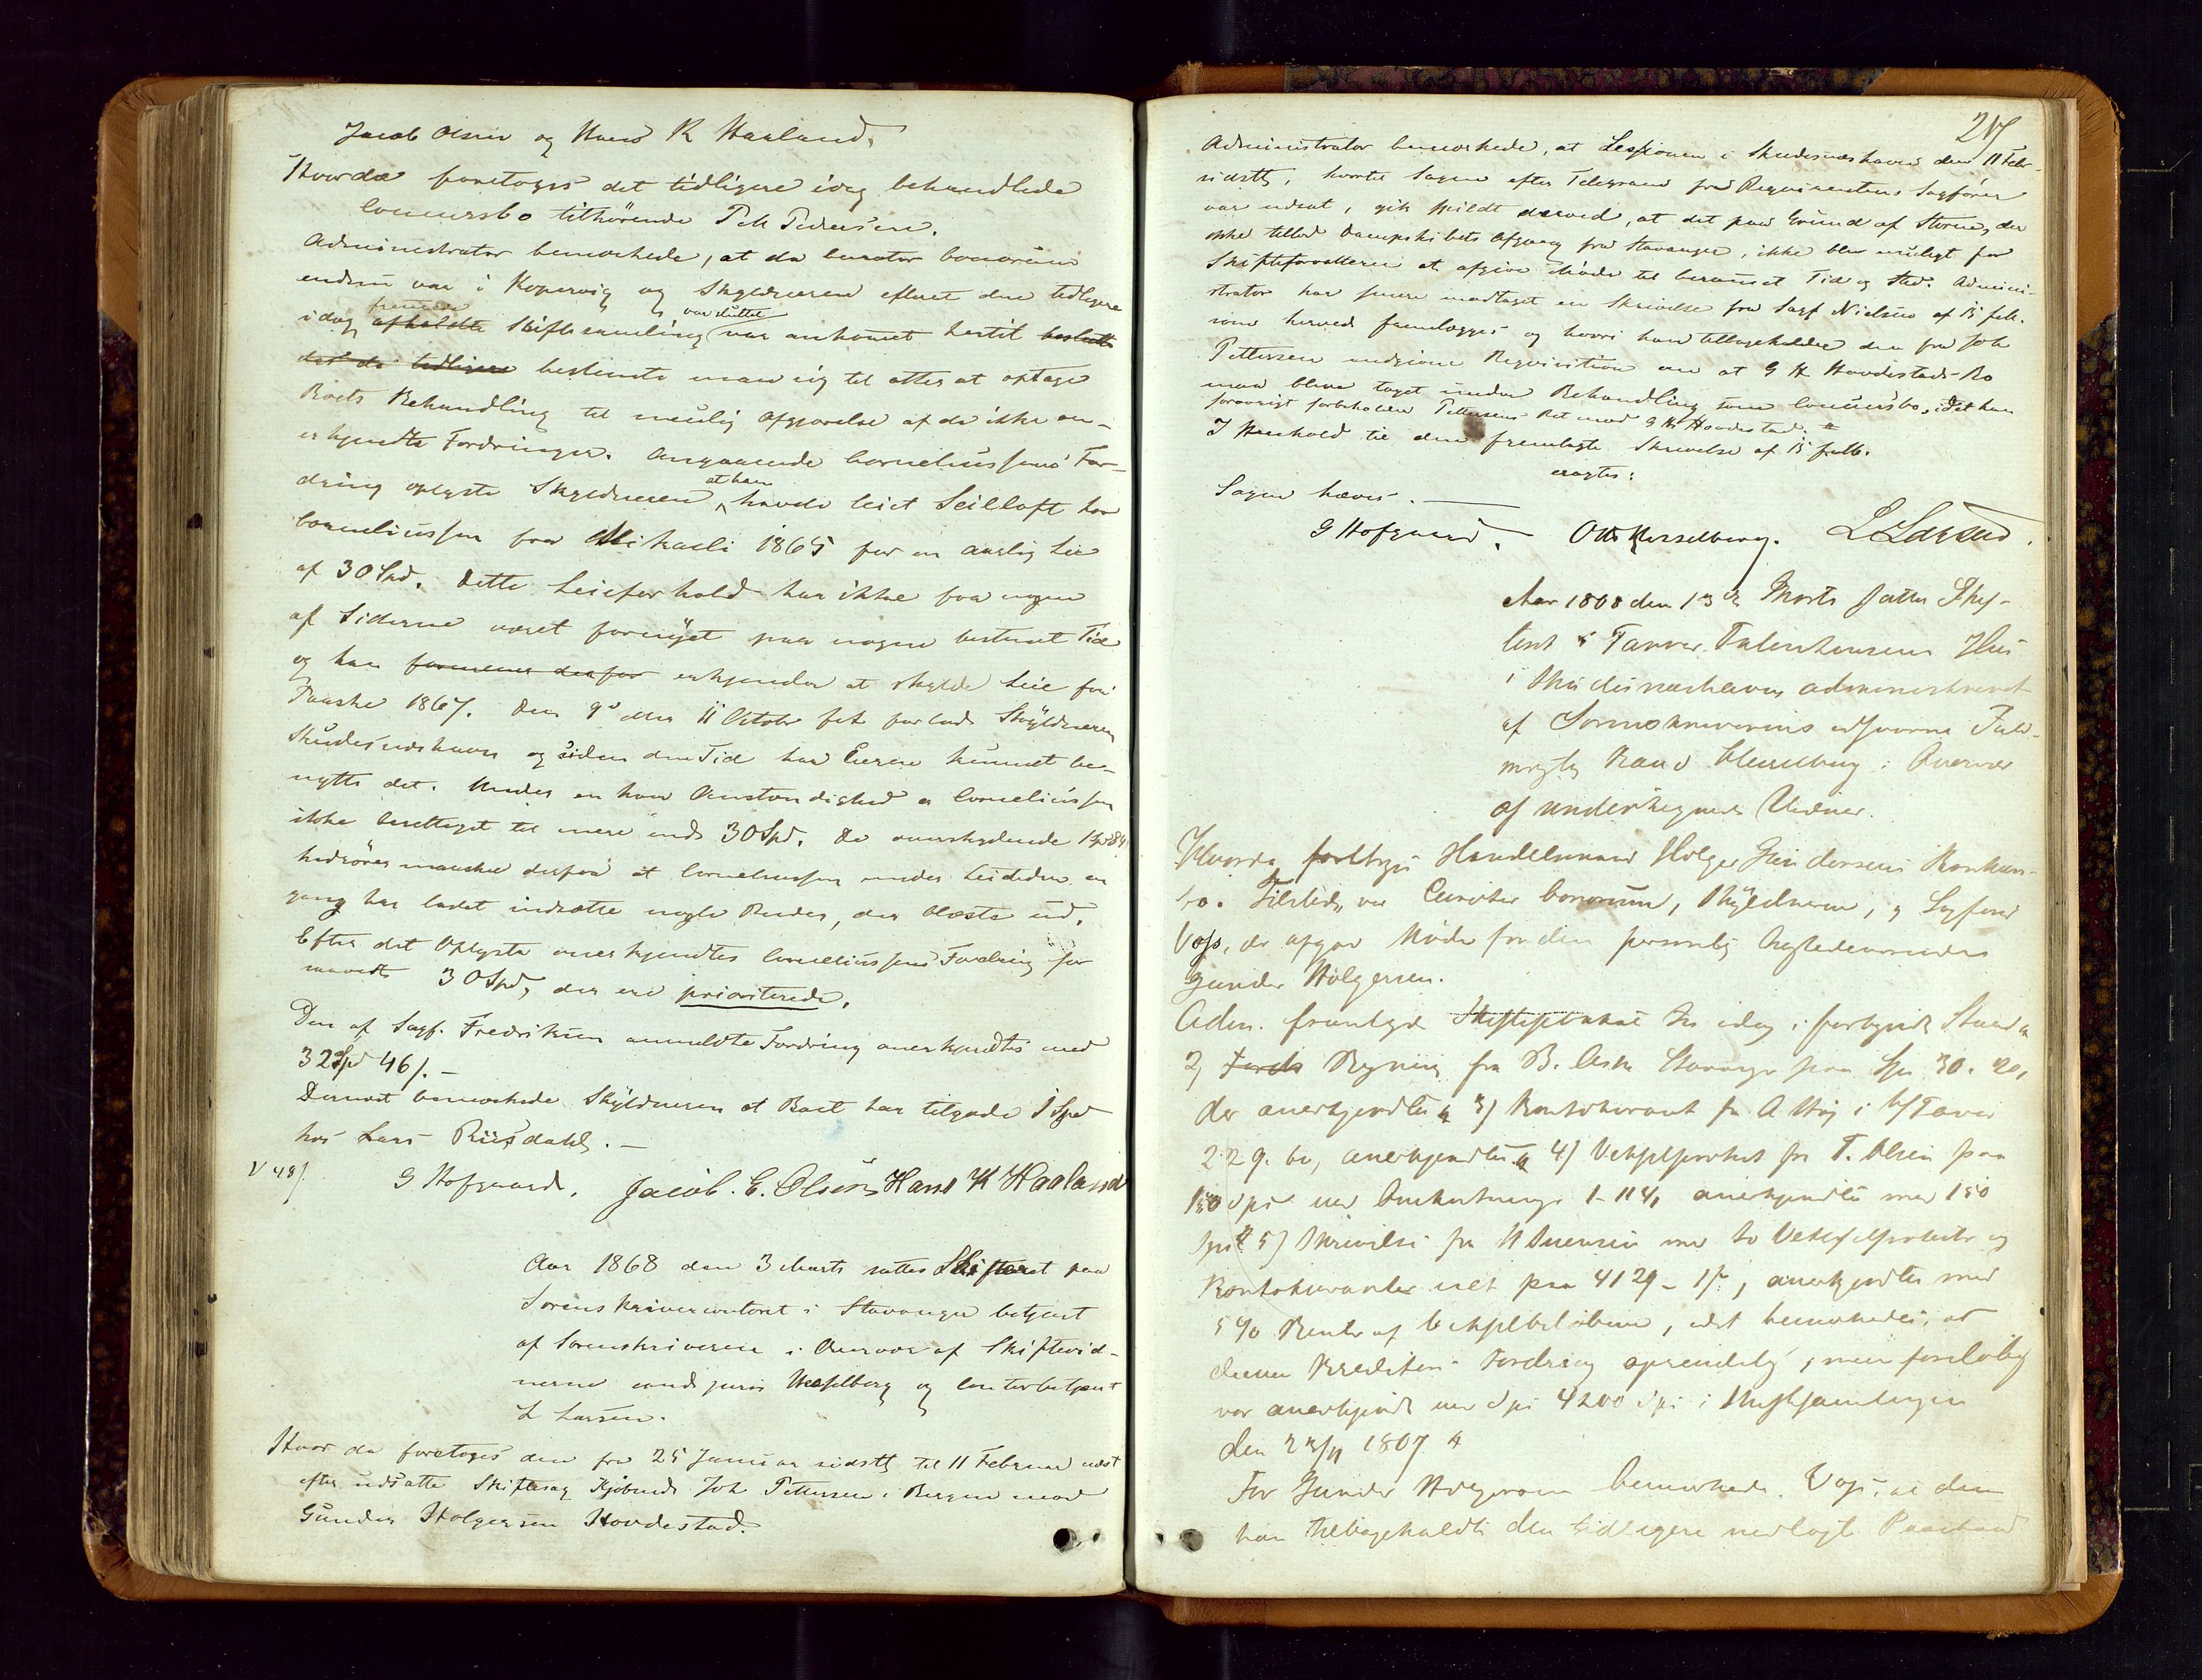 Jacob Olsen og Hans K Haaland,
Hvorda foretoges det tidligere idag behandlede
Concursbo tilhørende Peder Pedersen.
Administrator bemærkede, at da curator bonorum
endnu var i Kopervig og Skyldneren efteret den tidligere
idag fremede afholdte Skiftesamling var sluttet var ankomet hertil besluttet
det da tidligere bestemte man sig til atter at optage
Boets Behandling til muelig Afgjørelse af de ikke an-
erkjendte Fordringer. Angaaende Corneliussens For-
dring oplyste Skyldneren, at han havde leiet Seilloft hos
Corneliussen fra Mikaeli 1865 for en aarlig Leie
af 30 Spd. Dette Leieforhold har ikke fra nogen
af Siderne været fornyet paa nogen bestemt Tid
og han formener derfor erkjender at skylde Leie fra
Paaske 1867. Den 9de eller 11 Octobr f.A. forlod Skyldneren
Skudesneshavn og siden den Tid har Eieren kunnet be-
nytte det. Under en hver Omstændighed er Corneliussen
ikke berettiget til mere end 30 Spd. De overskydende 1 Spd 84
hidrører maaskee derfra at Corneliussen under Leietiden en
gang har ladet indsætte nogle Ruder, der blæste ud.
Efter det Oplyste anerkjendtes Corneliussens Fordring for
30 Spd, der ere prioriterede.
Den af Sagf. Fredriksen anmeldte Fordring anerkjendtes med
32 Spd 46 s. –
Dernæst bemærkede Skyldneren at Boet har tilgode 1 Spd
hos Lars Riisdahl. –
V 48 s.
G Hofgaard. Jacob. E. Olsen Hans K Haaland
Aar 1868 den 3 Marts sattes Skifteret paa
Sorenskrivercontoret i Stavanger betjent
af Sorenskriveren i Overvær af Skiftevid-
nerne cand juris Hesselberg og Contorbetjent
L Larsen.
Hvor da foretoges den fra 25 Januar sidstl. til 11 Februar næst
efter udsatte Skiftesag Kjøbmd. Joh Pettersen i Bergen mod
Gunder Holgersen Hovdestad.
217
Administrator bemærkede, at Sessionen i Skudesneshavn den 11 Febr.
sidstl., hvortil Sagen efter Telegram fra Reqvirentens Sagfører
var udsat, gik spildt derved, at det paa Grund af Storm, der
ikke tillod Dampskibets Afgang fra Stavanger, ikke blev muligt for
Skifteforvalteren at afgive Møde til berammet Tid og Sted. Admini-
strator har senere modtaget en Skrivelse fra Sagf Nielsen af 13 feb.
som herved fremlægges og hvori han tilbagekalder den fra Joh
Pettersen indgivne Reqvisition om at G H Hovdestads Bo
maa blive taget under Behandling som Concursbo, idet han
forøvrigt forbeholder Pettersens Ret mod G H Hovdestad.
I Henhold til den fremlagte Skrivelse af 13 febr.
eragtes:
Sagen hæves. —
G Hofgaard. Otto Hesselberg. L Larsen.
Aar 1868 den 13de Marts sattes Skif-
teret i Hus
i Skudesneshavn administreret
af Sorenskriverens edsvorne Fuld-
mægtig Hesselberg i Overvær
af undertegnede Vidner.
Hvorda foretoges Handelsmand Holger Gundersens Konkurs-
bo. Tilstede var Curator bonorum, Skyldneren, og Sagfører
Voss, der afgav Møde for den personlig tilstedeværende
Gunder Holgersen.
Adm. fremlagde Skifteprotokol
2) Regning fra B. Olsen Stavanger paa Spd 30. 20,
der anerkjendtes 3) Kontokurant fra A Høy i
229. 60, anerkjendtes 4) Vexelprotest fra T. Olsen paa
150 Spd med Omkostninger 1-114, anerkjendtes med 150
Spd 5) Skrivelse fra H Svensen med to Vexelprotester og
Kontokuranter ialt paa 4129 – 1 s, anerkjendtes med
5 % Renter af Vexelbeløbene, idet bemærkedes, at
denne Kreditors Fordring oprindelig, men foreløbig
var anerkjendt med Spd 4200 Spd i Skiftesamlingen
den 23/11 1867
For Gunder Holgersen bemærkede Voss, at den
han tilbagekaldte den tidligere nedlagte Paastand